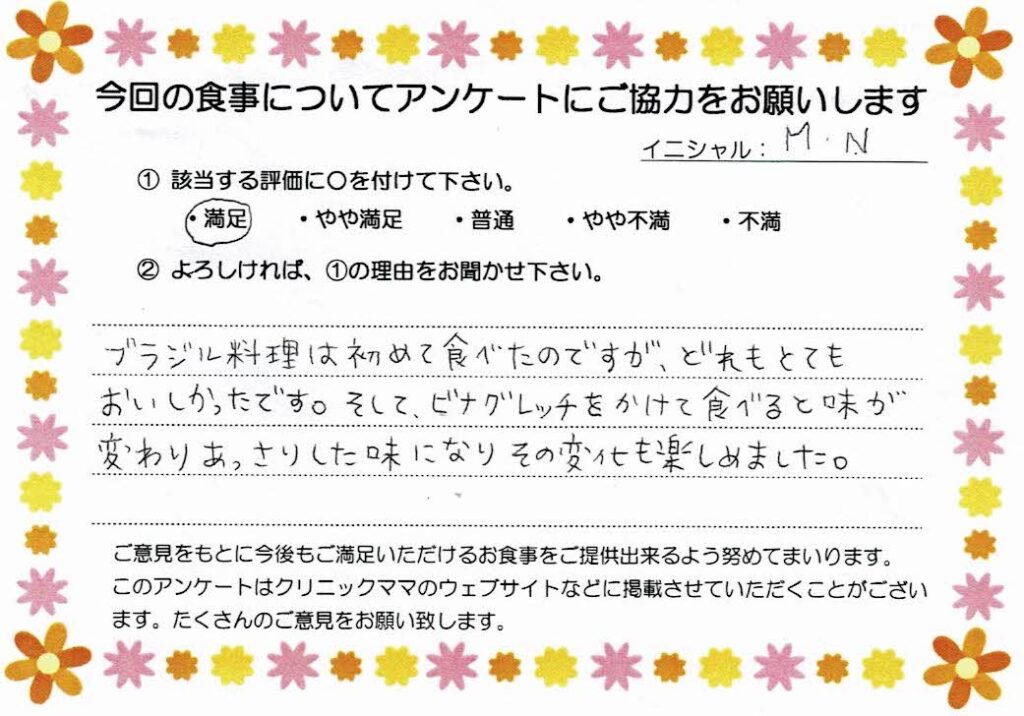 今回の食事についてアンケートにご協力をお願いします
イニシャル： M . N
① 該当する評価に〇を付けて下さい。
・満足 ・やや満足 ・普通 ・やや不満 ・不満
② よろしければ、①の理由をお聞かせ下さい。
ブラジル料理は初めて食べたのですが、どれもとても
おいしかったです。そして、ビナグレッチをかけて食べると味が
変わりあっさりした味になりその変化も楽しめました。
ご意見をもとに今後もご満足いただけるお食事をご提供出来るよう努めてまいります。
このアンケートはクリニックママのウェブサイトなどに掲載させていただくことがござい
ます。たくさんのご意見をお願い致します。